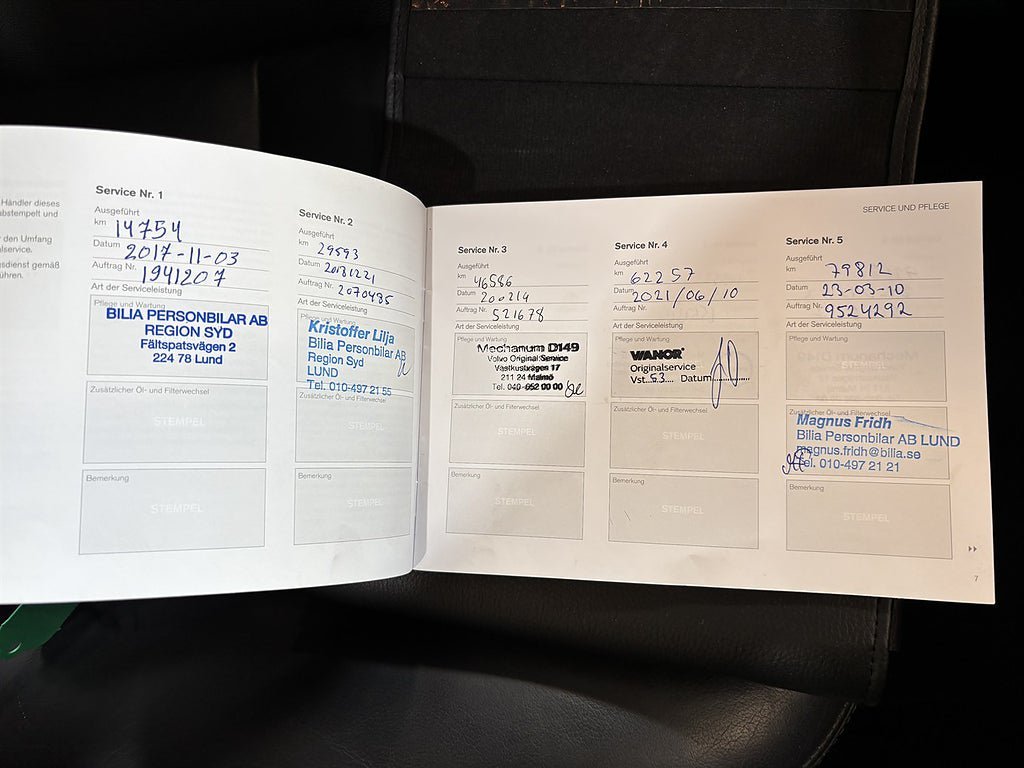 Händler dieses
abstempelt und
den Umfang
alservice.
gsdienst gemäß
ühren.
Service Nr. 1
Ausgeführt
km 14754
Datum 2017-11-03
Auftrag Nr. 1941207
Art der Serviceleistung
Pflege und Wartung
BILIA PERSONBILAR AB
REGION SYD
Fältspatsvägen 2
224 78 Lund
Zusätzlicher Öl- und Filterwechsel
STEMPEL
Bemerkung
STEMPEL
Service Nr. 2
Ausgeführt
km 29593
Datum 20181221
Auftrag Nr. 2070435
Art der Serviceleistung
Pflege und Wartung
Kristoffer Lilja
Bilia Personbilar AB
Region Syd
LUND
Tel. 010-497 21 55
Zusätzlicher Öl- und Filterwechsel
STEMPEL
Bemerkung
STEMPEL
SERVICE UND PFLEGE
Service Nr. 3
Ausgeführt
km 46586
Datum 200214
Auftrag Nr. 521678
Art der Serviceleistung
Pflege und Wartung
Mechanum D149
Volvo Original Service
Västkustvägen 17
211 24 Malmö
Tel. 040-652 00 00
Zusätzlicher Öl- und Filterwechsel
STEMPEL
Bemerkung
STEMPEL
Service Nr. 4
Ausgeführt
km 62257
Datum 2021/06/10
Auftrag Nr.
Art der Serviceleistung
Pflege und Wartung
WANOR
Originalservice
Vst. 53 Datum
Zusätzlicher Öl- und Filterwechsel
STEMPEL
Bemerkung
STEMPEL
Service Nr. 5
Ausgeführt
km 79812
Datum 23-03-10
Auftrag Nr. 9524292
Art der Serviceleistung
Pflege und Wartung
STEMPEL
Zusätzlicher Öl- und Filterwechsel
Magnus Fridh
Bilia Personbilar AB LUND
magnus.fridh@bilia.se
Tel. 010-497 21 21
Bemerkung
STEMPEL
7